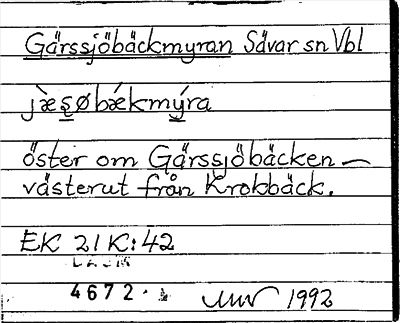 Gärssjöbäckmyran Sävar sn Vbl
jæ̀ş̀øbækmýra
öster om Gärssjöbäcken –
västerut från Krokbäck.
EK 21K:42
4672
1992